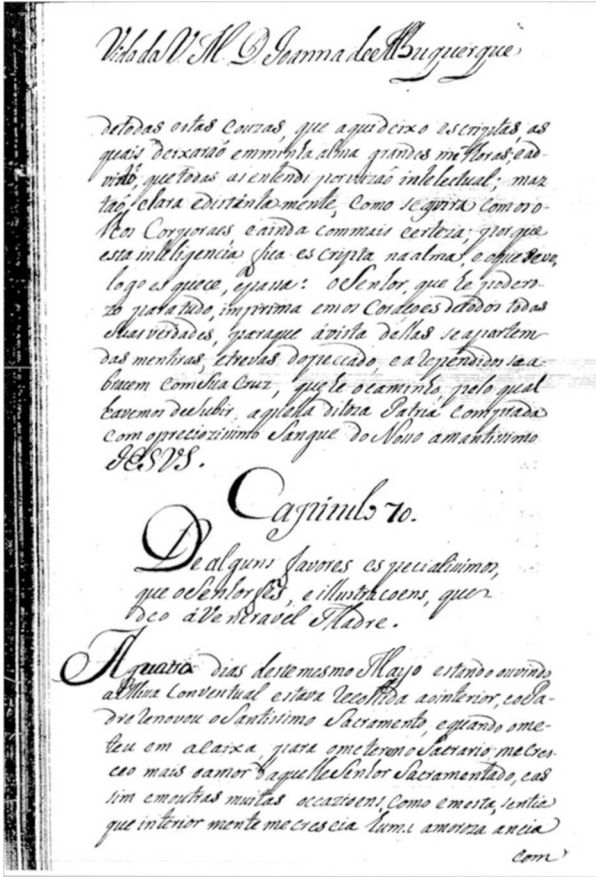 Vida da V. M. D. Joanna de Albuquerque
detodas estas couzas, que aqui deixo escriptas, as
quais deixarão em minha alma grandes melhoras: e ad-
virto, que todas as entendi por vizão intelectual; maz
tão, clara e distinta mente, como se o vira com os o-
lhos Corporaes e ainda com mais certeza; porque
esta inteligencia fica escripta na alma, e o que se ve,
logo esquece, e passa: o Senhor, que he podero-
zo para tudo, imprima em os Coraçoes de todos todas
suas verdades, paraque á vista dellas se apartem
das mentiras, e trevas do peccado, e arependidos se a-
bracem com Sua Cruz, que he o caminho, pelo qual
havemos de Subir, a quella ditoza Patria comprada
com o preciozissimo Sangue do Nosso amantissimo
JESVS.
Capitulo 70.
De alguns favores especialissimos,
que o Senhor fes, e illustraçoens, que
deo á Veneravel Madre.
A quatro dias deste mesmo Mayo estando ouvindo
a Missa Conventual estava recolhida ao interior, e o Pa-
dre renovou o Santissimo Sacramento, e quando o me-
teu em a caixa, para o meter em o Sacrario, me cres-
ceo mais o amor daquelle Senhor Sacramentado, e as
sim em outras muitas occazioens, como em esta, sentia
que interior mente me crescia huma amoroza ancia
com